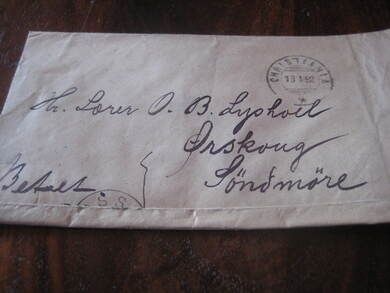 CHRISTIANIA
18 1 92
Hr. Lærer O. B. Lyshoel
Ørskoug
Söndmöre
Betalt